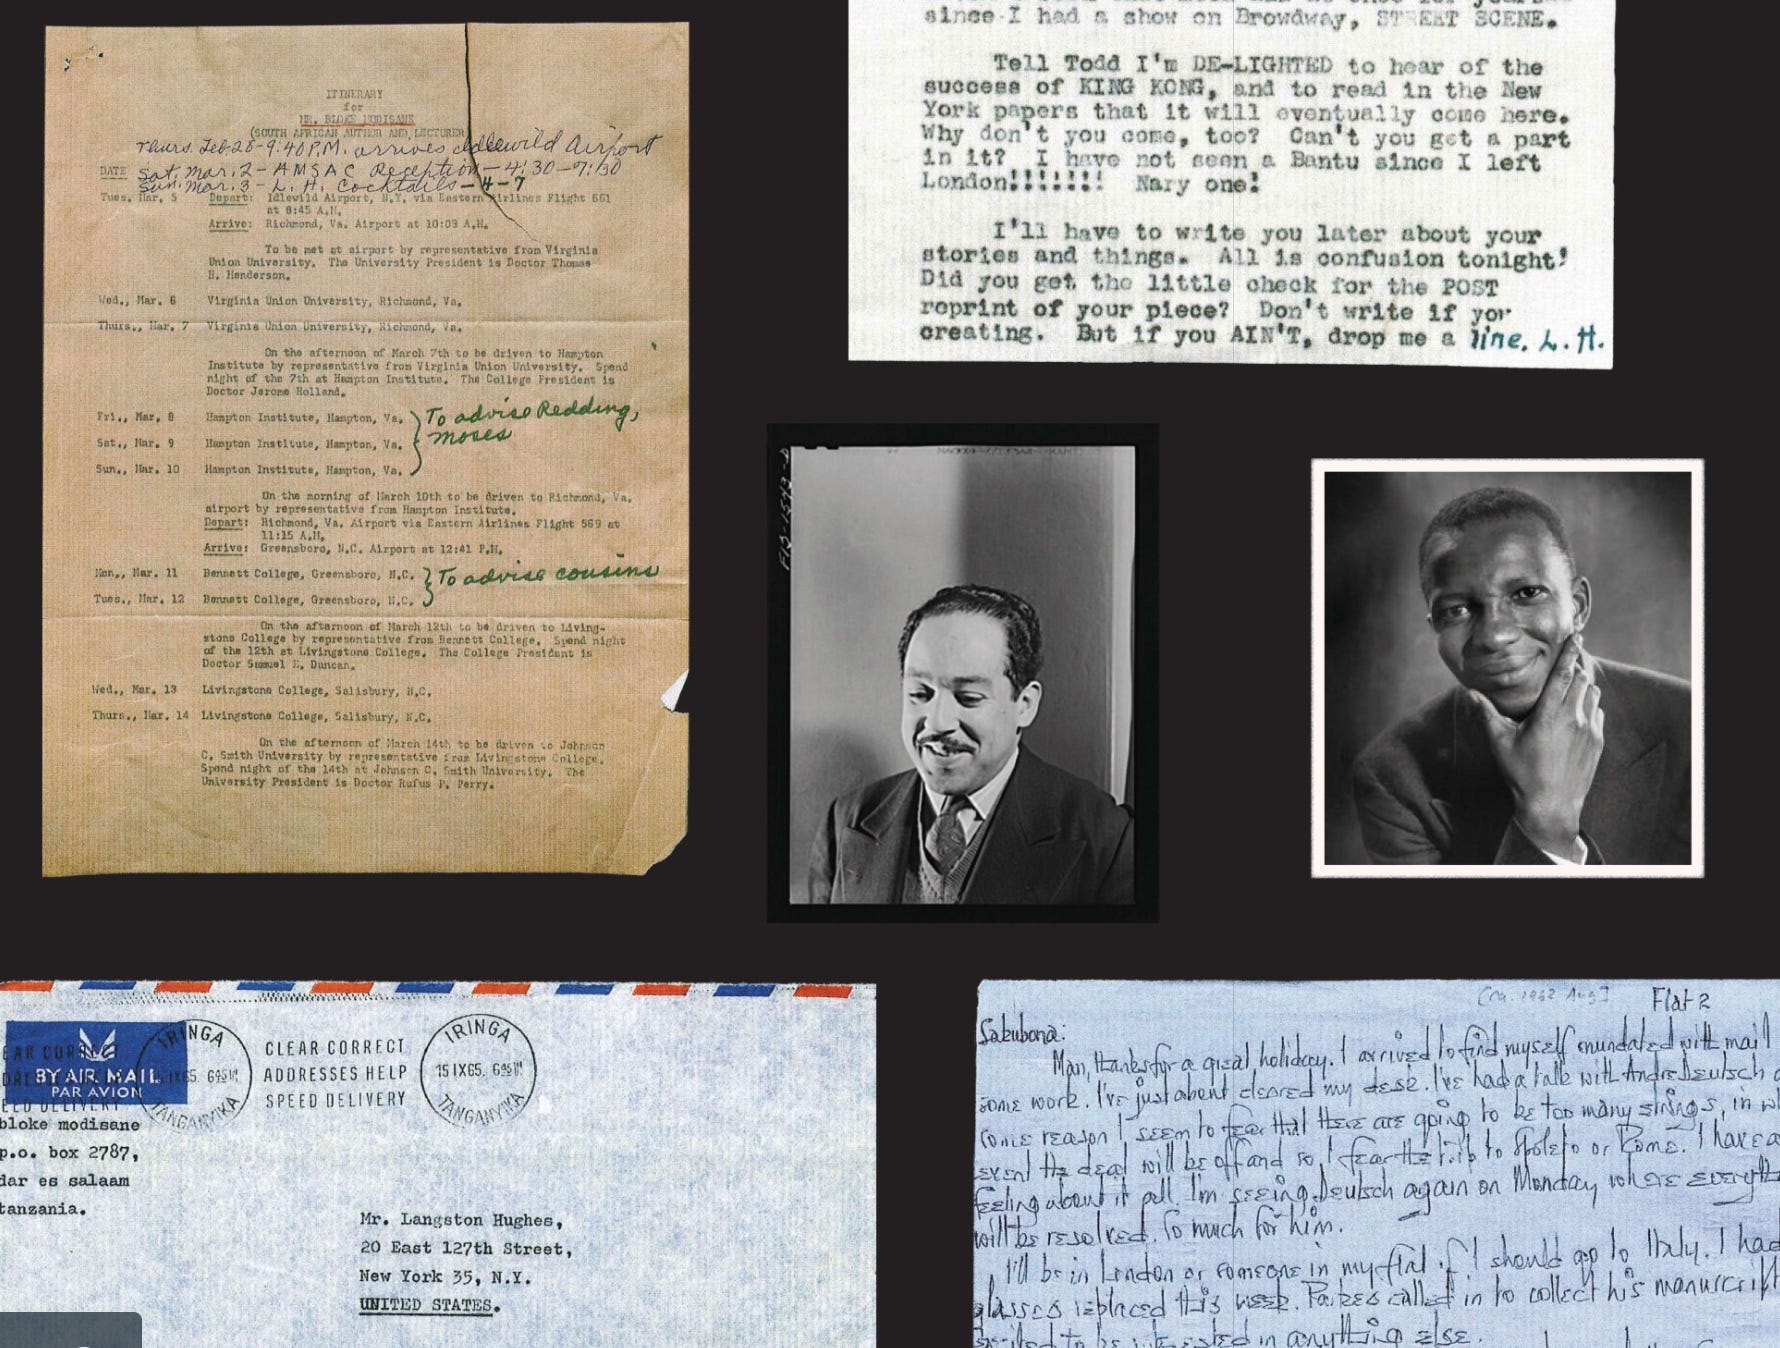 ITINERARY
for
MR. BLOKE MODISANE
(SOUTH AFRICAN AUTHOR AND LECTURER
Thurs. Feb 28 - 9:40 P.M. arrives Idlewild Airport
DATE Sat, Mar. 2 - AMSAC Reception - 4:30 - 7:30
Sun. Mar. 3 - L. H. Cocktails - 4-7
Tues. Mar. 5 Depart: Idlewild Airport, N.Y. via Eastern Airlines Flight 661
at 8:45 A.M.
Arrive: Richmond, Va. Airport at 10:09 A.M.
To be met at airport by representative from Virginia
Union University. The University President is Doctor Thomas
H. Henderson.
Wed., Mar. 6 Virginia Union University, Richmond, Va.
Thurs., Mar. 7 Virginia Union University, Richmond, Va.
On the afternoon of March 7th to be driven to Hampton
Institute by representative from Virginia Union University. Spend
night of the 7th at Hampton Institute. The College President is
Doctor Jerome Holland.
Fri., Mar. 8 Hampton Institute, Hampton, Va. } To advise Redding,
Sat., Mar. 9 Hampton Institute, Hampton, Va. Moses
Sun., Mar. 10 Hampton Institute, Hampton, Va.
On the morning of March 10th to be driven to Richmond, Va.
airport by representative from Hampton Institute.
Depart: Richmond, Va. Airport via Eastern Airlines Flight 569 at
11:15 A.M.
Arrive: Greensboro, N.C. Airport at 12:41 P.M.
Mon., Mar. 11 Bennett College, Greensboro, N.C. } To advise cousins
Tues., Mar. 12 Bennett College, Greensboro, N.C.
On the afternoon of March 12th to be driven to Living-
stone College by representative from Bennett College. Spend night
of the 12th at Livingstone College. The College President is
Doctor Samuel E. Duncan.
Wed., Mar. 13 Livingstone College, Salisbury, N.C.
Thurs., Mar. 14 Livingstone College, Salisbury, N.C.
On the afternoon of March 14th to be driven to Johnson
C. Smith University by representative from Livingstone College.
Spend night of the 14th at Johnson C. Smith University. The
University President is Doctor Rufus P. Perry.
since I had a show on Browdway, STREET SCENE.
Tell Todd I'm DE-LIGHTED to hear of the
success of KING KONG, and to read in the New
York papers that it will eventually come here.
Why don't you come, too? Can't you get a part
in it? I have not seen a Bantu since I left
London!!!!!!! Nary one!
I'll have to write you later about your
stories and things. All is confusion tonight!
Did you get the little check for the POST
reprint of your piece? Don't write if yor
creating. But if you AIN'T, drop me a line. L.H.
BY AIR MAIL
PAR AVION
IRINGA
TANGANYIKA
CLEAR CORRECT
ADDRESSES HELP
SPEED DELIVERY
IRINGA
15 IX65.
TANGANYIKA
bloke modisane
p.o. box 2787,
dar es salaam
tanzania.
Mr. Langston Hughes,
20 East 127th Street,
New York 35, N.Y.
UNITED STATES.
[ca. 1962 Aug] Flat 2
Sakubona:
Man, thanks for a great holiday. I arrived to find myself inundated with mail
some work. I've just about cleared my desk. I've had a talk with Andre Deutsch
some reason I seem to fear that there are going to be too many strings, in
event the deal will be off and so I fear the trip to Spoleto or Rome. I have a
feeling about it all. I'm seeing Deutsch again on Monday where
will be resolved. So much for him.
I'll be in London or someone in my flat if I should go to Italy. I had
glasses replaced this week. called in to collect his manuscript
to be interested in anything else.